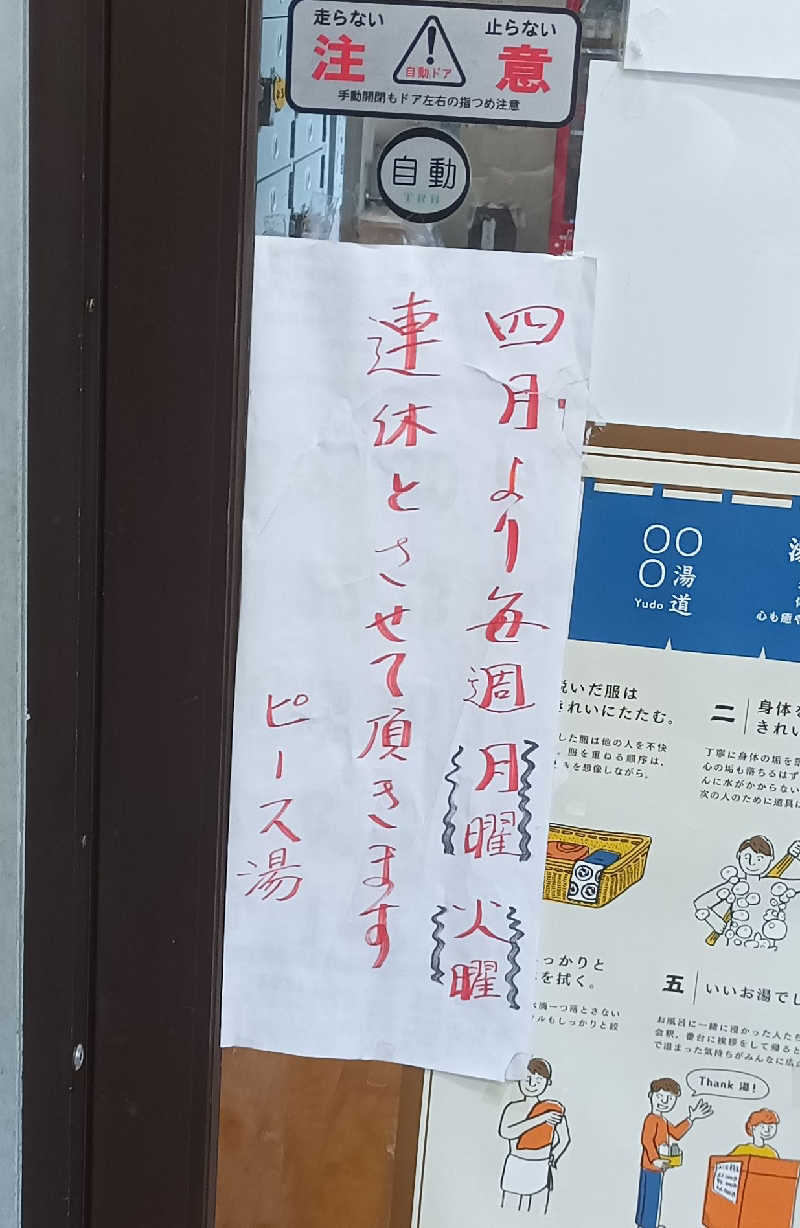 走らない
止らない
注
意
自動ドア
手動開閉もドア左右の指つめ注意
自動
四月より毎週月曜火曜
連休とさせて頂きます
ピース湯
〇〇
〇湯
Yudo 道
いだ服は
きれいにたたむ。
した服は他の人を不快
服を重ねる順序は、
を想像しながら。
二
身体
きれい
丁寧に身体の垢を
心の垢も落ちるはず
んに水がかからない
次の人のために道具
っかりと
を拭く。
滴一つ落とさない
ルもしっかりと絞
五
いいお湯でし
お風呂に一緒に浸かった人たち
会釈。番台に挨拶をして帰ると
で温まった気持ちがみんなに広
Thank 湯!